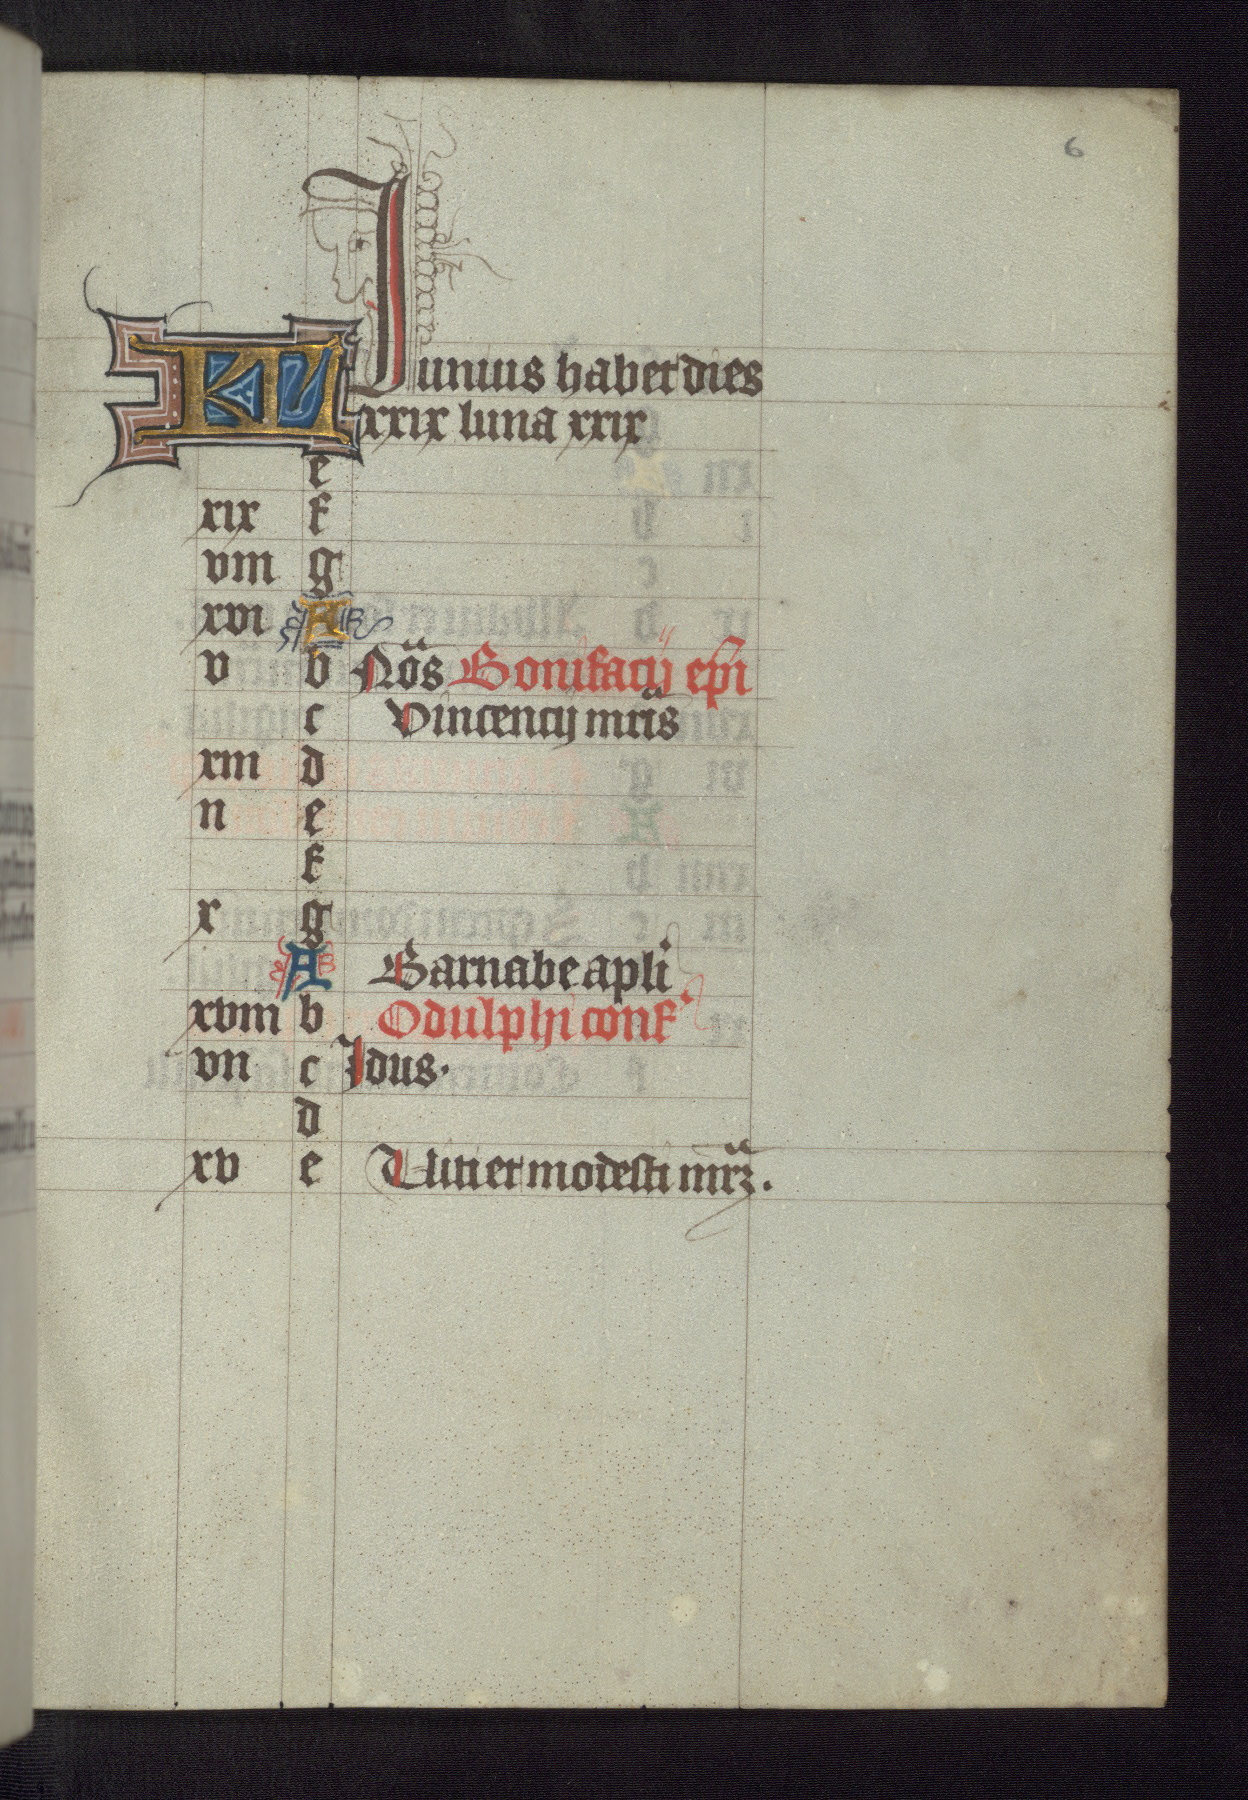 6
Junius habet dies
KL xxix luna xxix
e
xix f
viii g
xvi A
v b Nōs Bonifacij epi
c Vincencij mris
xiii d
ii e
f
x g
A Barnabe apli
xviii b Odulphi conf
vii c Idus.
d
xv e Viti et modesti mrz.